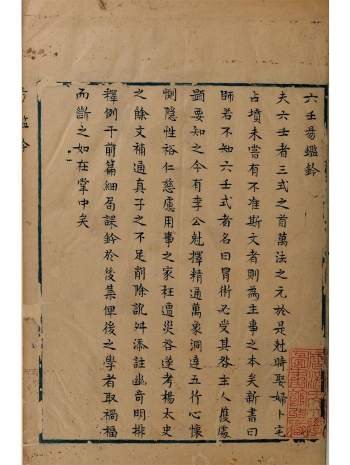 六壬易鑑鈐
夫六壬者三式之首萬法之元於是尅時娶婦卜宅
占墳未嘗有不准斯文者則為主事之本矣新書曰
師者不知六壬式者名曰冒術必受其咎主人應處
顕要知之今有李公尅擇精通萬象洞達五行心懷
惻隱性裕仁慈慮用事之家枉遭災咎遂考楊太史
之餘文補通真子之不足削除訛舛添註幽奇明排
釋例于前篇細刍課鈐於後集俾後之學者取禍福
而斷之如在掌中矣